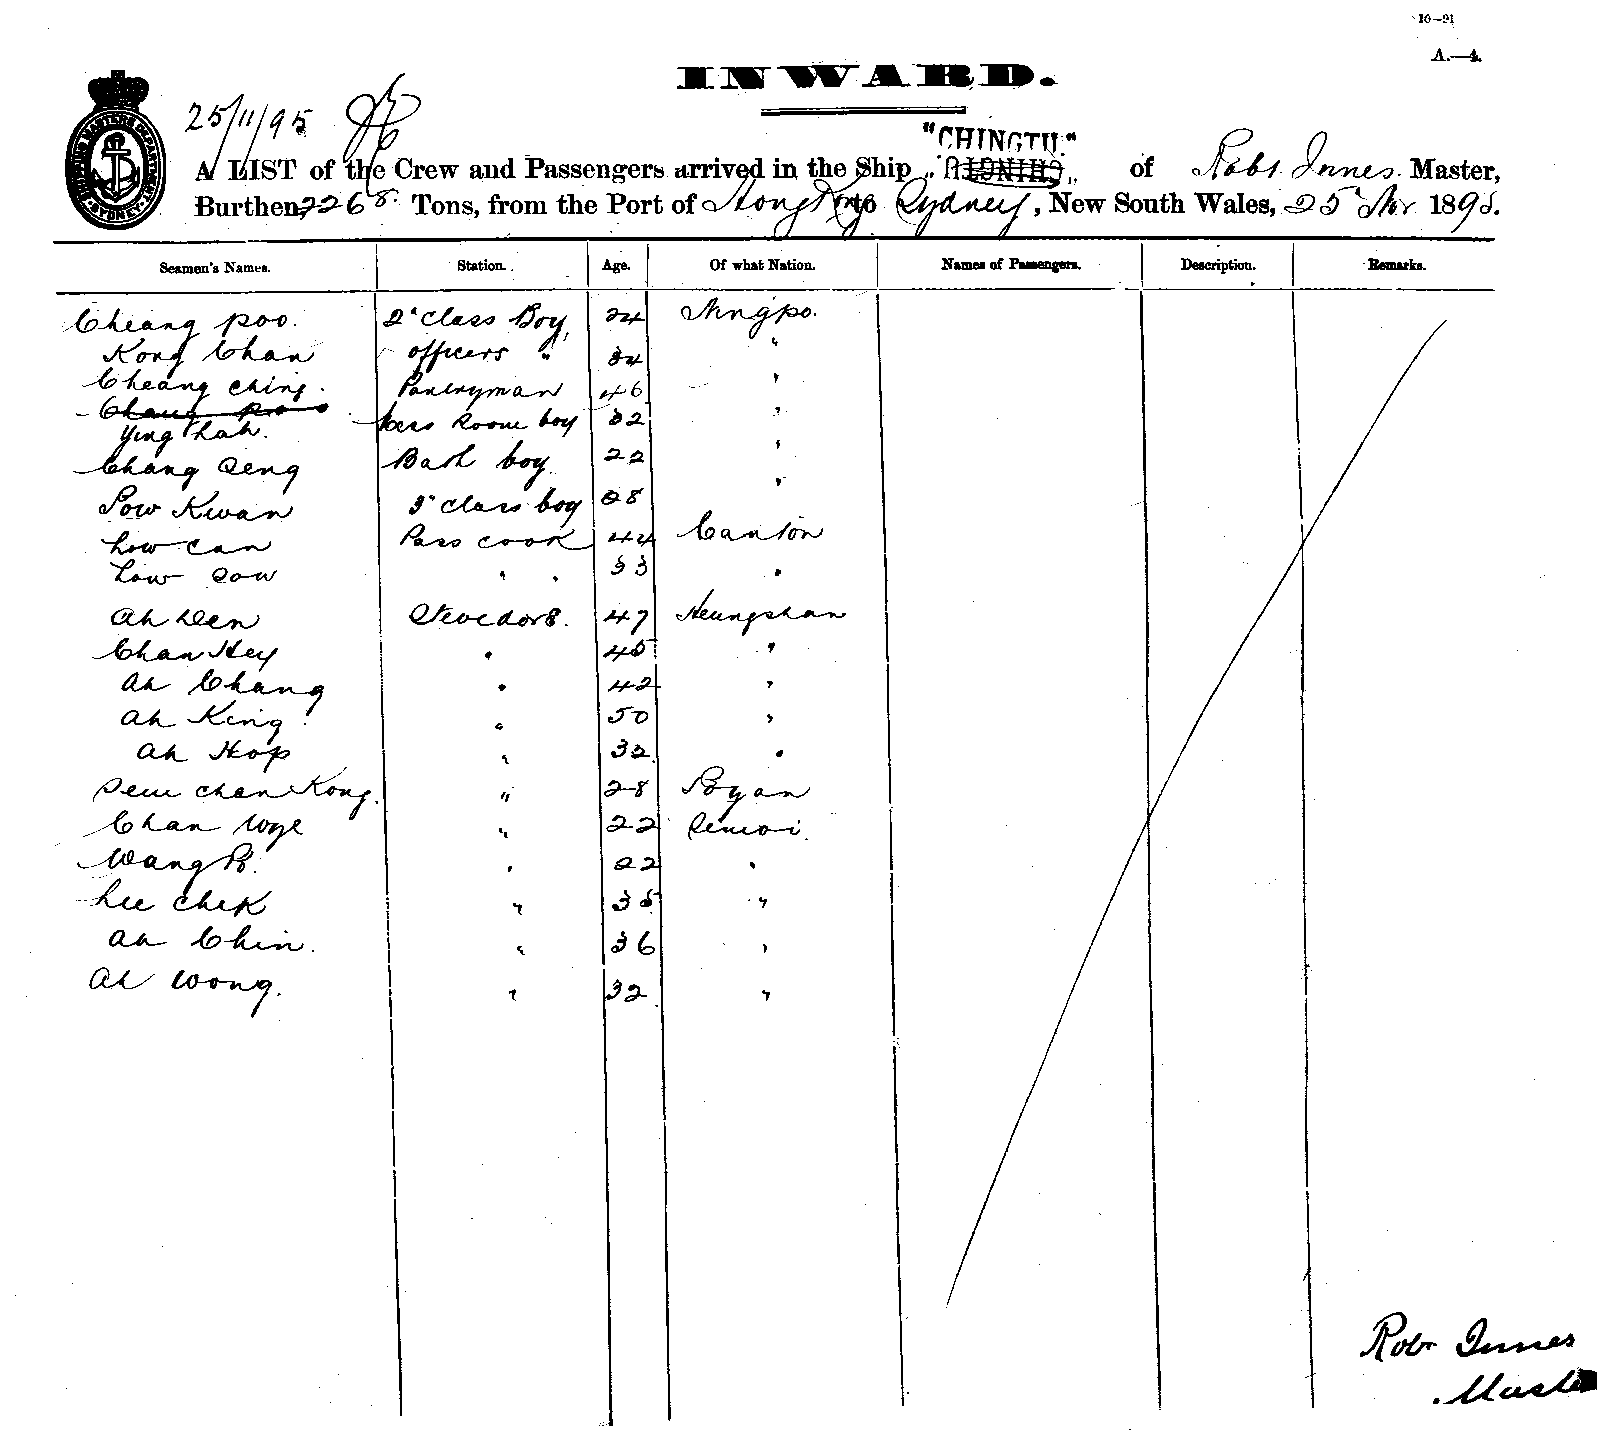 10—91
A.—4.
INWARD.
25/11/95
"CHINGTU"
A LIST of the Crew and Passengers arrived in the Ship of Robt Innes Master,
Burthen 2268 Tons, from the Port of Hong Kong to Sydney, New South Wales, 25 Nov 1895.
Seamen's Names. Station. Age. Of what Nation. Names of Passengers. Description. Remarks.
Cheang Poo. 2d Class Boy, 24 Ningpo.
Kong Chan officers " 34 "
Cheang Ching. Pantryman 46 "
Chang Poo
Ying Hah. Mess Room boy 32 "
Chang Seng Bath boy 22 "
Sow Kwan 3d class boy 28 "
Low Can Pass cook 44 Canton
Low Sow " " 33 "
Ah Sen Stevedore. 47 Heungshan
Chan Hey " 45 "
Ah Chang " 42 "
Ah King " 50 "
Ah Hop " 32 "
Seu Chan Kong. " 28 Poyan
Chan Wye " 22 Sunoi.
Wang Po. " 22 "
Lee Chek " 35 "
Ah Chin. " 36 "
Ah Wong. " 32 "
Rob Innes
Master